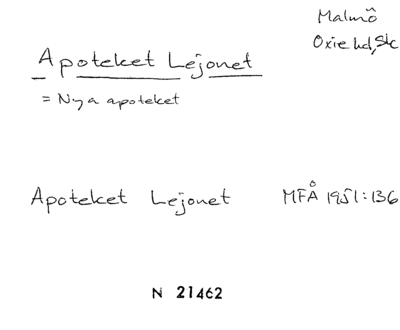 Malmö
Oxie hd, Sk
Apoteket Lejonet
= Nya apoteket
Apoteket Lejonet MFÅ 1951:136
N 21462